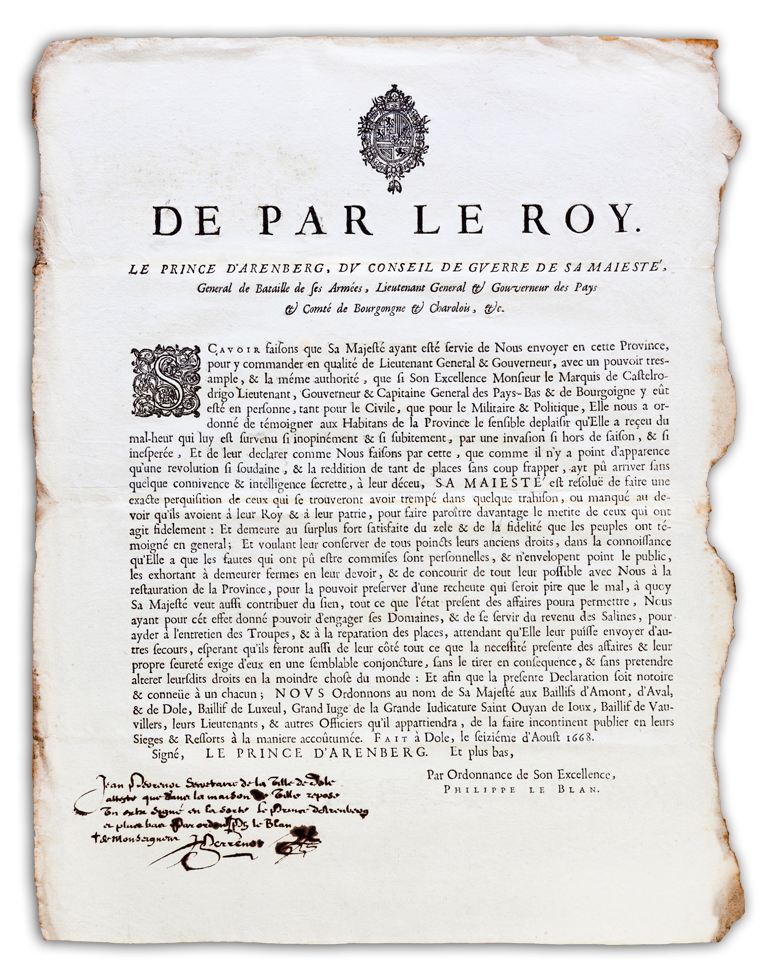 DE PAR LE ROY.
LE PRINCE D'ARENBERG, DV CONSEIL DE GVERRE DE SA MAIESTÉ,
General de Bataille de ſes Armées, Lieutenant General & Gouverneur des Pays
& Comté de Bourgongne & Charolois, &c.
SÇAVOIR faiſons que Sa Majeſté ayant eſté ſervie de Nous envoyer en cette Province,
pour y commander en qualité de Lieutenant General & Gouverneur, avec un pouvoir tres-
ample, & la méme authorité, que ſi Son Excellence Monſieur le Marquis de Caſtelro-
drigo Lieutenant, Gouverneur & Capitaine General des Pays-Bas & de Bourgoigne y eût
eſté en perſonne, tant pour le Civile, que pour le Militaire & Politique, Elle nous a or-
donné de témoigner aux Habitans de la Province le ſenſible deplaiſir qu'Elle a reçeu du
mal-heur qui luy eſt ſurvenu ſi inopinément & ſi ſubitement, par une invaſion ſi hors de ſaiſon, & ſi
ineſperée, Et de leur declarer comme Nous faiſons par cette, que comme il n'y a point d'apparence
qu'une revolution ſi ſoudaine, & la reddition de tant de places ſans coup frapper, ayt pû arriver ſans
quelque connivence & intelligence ſecrette, à leur déceu, SA MAIESTÉ eſt reſoluë de faire une
exacte perquiſition de ceux qui ſe trouveront avoir trempé dans quelque trahiſon, ou manqué au de-
voir qu'ils avoient à leur Roy & à leur patrie, pour faire paroître davantage le merite de ceux qui ont
agit fidelement : Et demeure au ſurplus fort ſatisfaite du zele & de la fidelité que les peuples ont té-
moigné en general; Et voulant leur conſerver de tous poincts leurs anciens droits, dans la connoiſſance
qu'Elle a que les fautes qui ont pû eſtre commiſes ſont perſonnelles, & n'envelopent point le public,
les exhortant à demeurer fermes en leur devoir, & de concourir de tout leur poſſible avec Nous à la
reſtauration de la Province, pour la pouvoir preſerver d'une recheute qui ſeroit pire que le mal, à quoy
Sa Majeſté veut auſſi contribuer du ſien, tout ce que l'état preſent des affaires poura permettre, Nous
ayant pour cét effet donné pouvoir d'engager ſes Domaines, & de ſe ſervir du revenu des Salines, pour
ayder à l'entretien des Troupes, & à la reparation des places, attendant qu'Elle leur puiſſe envoyer d'au-
tres ſecours, eſperant qu'ils feront auſſi de leur côté tout ce que la neceſſité preſente des affaires & leur
propre ſeureté exige d'eux en une ſemblable conjoncture, ſans le tirer en conſequence, & ſans pretendre
alterer leurſdits droits en la moindre choſe du monde : Et afin que la preſente Declaration ſoit notoire
& connetüe à un chacun; NOVS Ordonnons au nom de Sa Majeſté aux Bailliſs d'Amont, d'Aval,
& de Dole, Bailliſ de Luxeul, Grand Iuge de la Grande Iudicature Saint Ouyan de Ioux, Bailliſ de Vau-
villers, leurs Lieutenants, & autres Officiers qu'il appartiendra, de la faire incontinent publier en leurs
Sieges & Reſſorts à la maniere accoûtumée. FAIT à Dole, le ſeiziéme d'Aouſt 1668.
Signé, LE PRINCE D'ARENBERG. Et plus bas,
Par Ordonnance de Son Excellence,
PHILIPPE LE BLAN.
Jean Perrenot Secretaire de la Ville de Dole
atteste que dans la maison de Ville repose
Un extr signé en la sorte le Prince d'Arenberg
et plus bas Par ordon le Blan
de Monseigneur JPerrenot